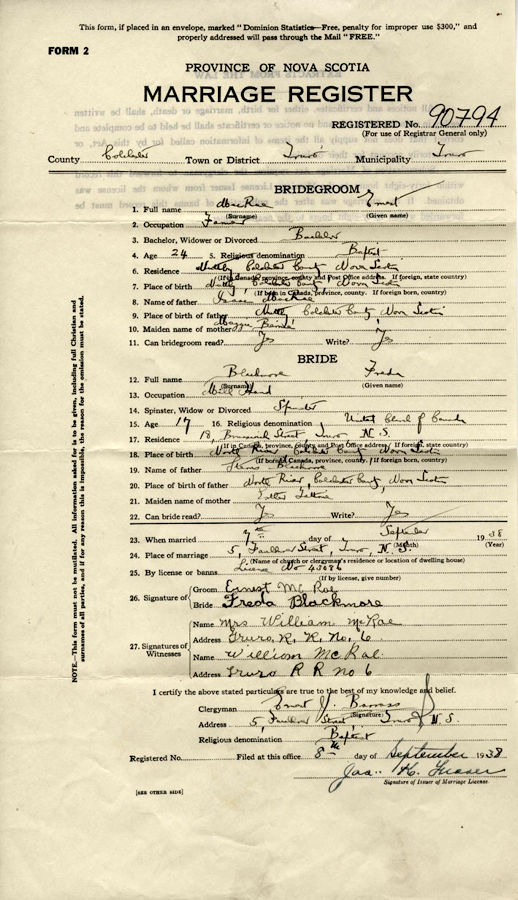 This form, if placed in an envelope, marked "Dominion Statistics—Free, penalty for improper use $300," and
properly addressed will pass through the Mail "FREE."
FORM 2
PROVINCE OF NOVA SCOTIA
MARRIAGE REGISTER
REGISTERED No. 90794
(For use of Registrar General only)
County Colchester Town or District Truro Municipality Truro
NOTE.—This form must not be mutilated. All information asked for is to be given, including full Christian and
surnames of all parties, and if for any reason this is impossible, the reason for the omission must be stated.
BRIDEGROOM
1. Full name MacRae Ernest
(Surname) (Given name)
2. Occupation Farmer
3. Bachelor, Widower or Divorced Bachelor
4. Age 24 5. Religious denomination Baptist
6. Residence Nuttby Colchester County Nova Scotia
(If in Canada, province, county and Post Office address. If foreign, state country)
7. Place of birth Nuttby Colchester County Nova Scotia
(If born in Canada, province, county. If foreign born, country)
8. Name of father Isaac MacRae
9. Place of birth of father Nuttby Colchester County Nova Scotia
10. Maiden name of mother Maggie
11. Can bridegroom read? Yes Write? Yes
BRIDE
12. Full name Blackmore Freda
(Surname) (Given name)
13. Occupation Mill Hand
14. Spinster, Widow or Divorced Spinster
15. Age 17 16. Religious denomination United Church of Canada
17. Residence 18, Street, Truro N.S.
(If in Canada, province, county and Post Office address. If foreign, state country)
18. Place of birth North River Colchester County Nova Scotia
(If born in Canada, province, county. If foreign born, country)
19. Name of father Blackmore
20. Place of birth of father North River, Colchester County, Nova Scotia
21. Maiden name of mother
22. Can bride read? Yes Write? Yes
23. When married 7th day of September 1938
(Month) (Year)
24. Place of marriage 5, Faulkner Street, Truro, N.S.
(Name of church or clergyman's residence or location of dwelling house)
25. By license or banns License No 43086
(If by license, give number)
26. Signature of Groom Ernest McRae
Bride Freda Blackmore
27. Signatures of Witnesses
Name Mrs William McRae
Address Truro, R. R. No. 6
Name William McRae
Address Truro R R no 6
I certify the above stated particulars are true to the best of my knowledge and belief.
Clergyman J. Barrass
(Signature)
Address 5, Faulkner Street Truro N S.
Religious denomination Baptist
Registered No. Filed at this office 8th day of September 1938
Jas. H. Fraser
Signature of Issuer of Marriage License
[SEE OTHER SIDE]